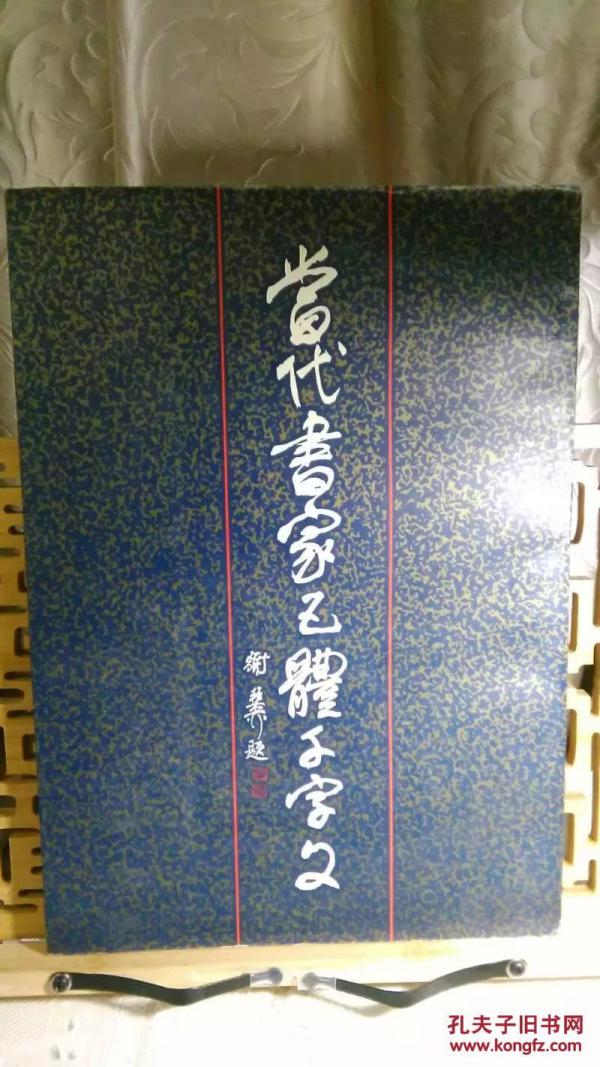 當代書家五體千字文
孔夫子旧书网
www.kongfz.com